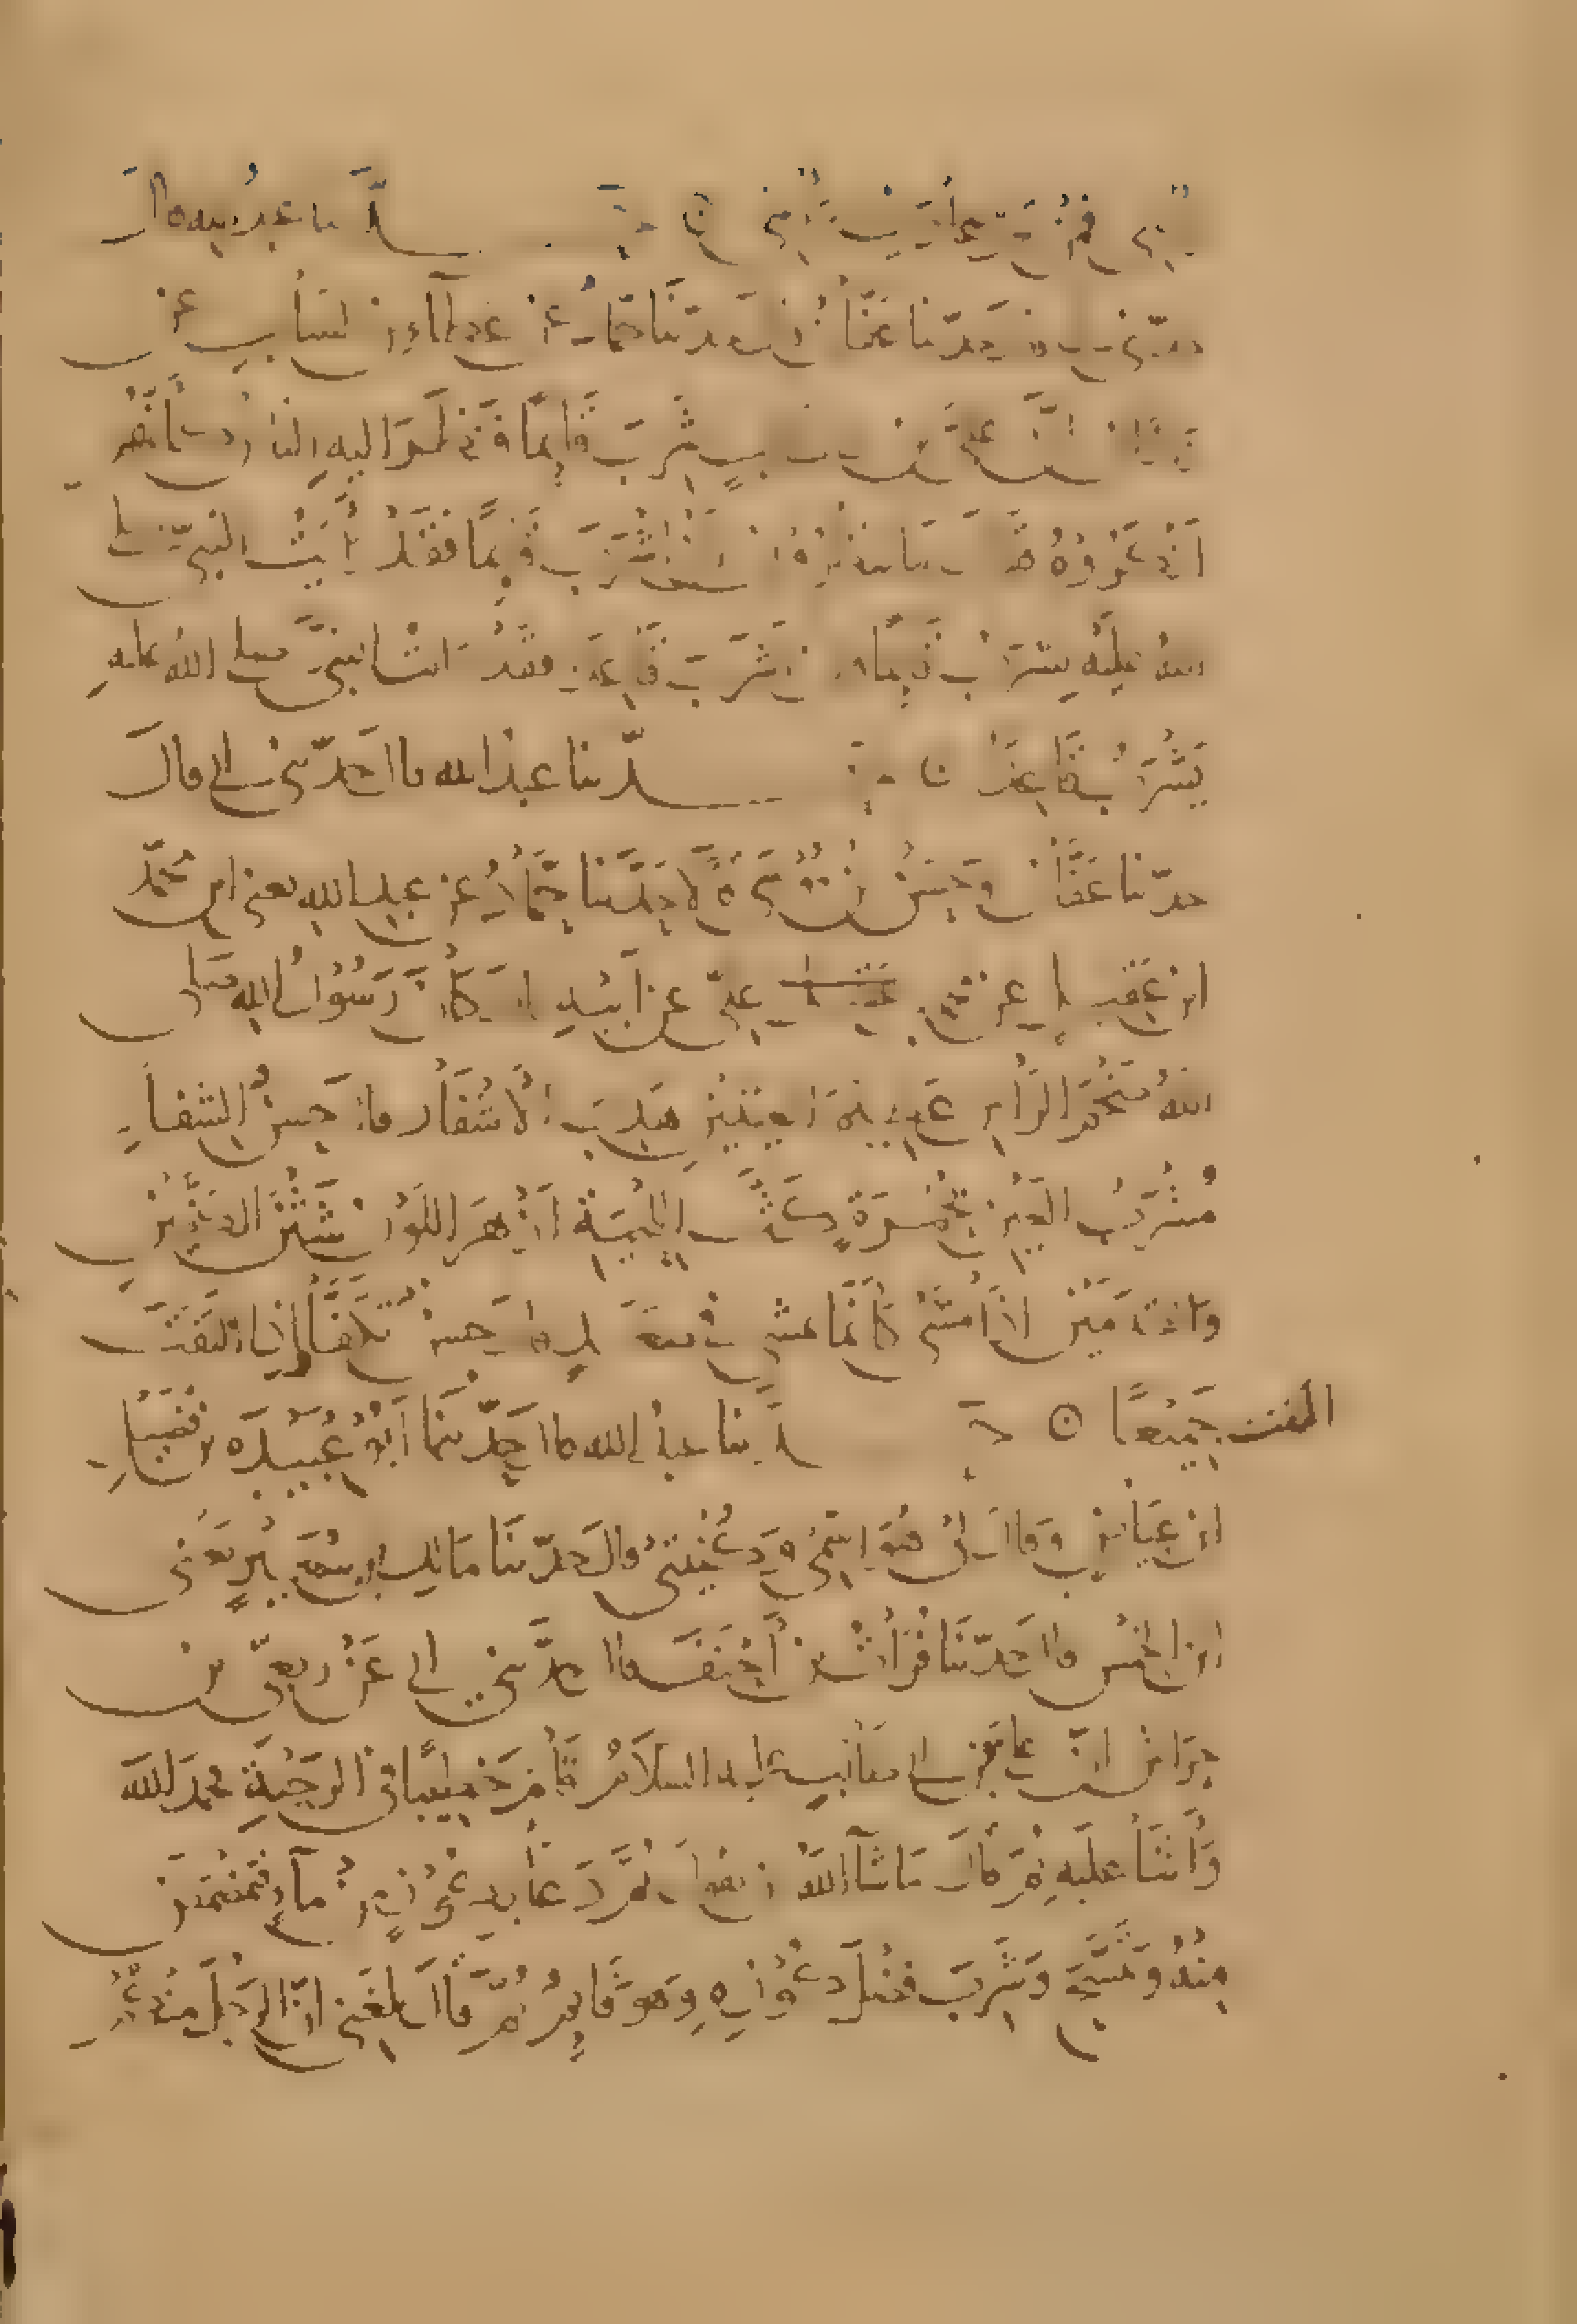 حدثنا عبد الله قال
حدثني حدثنا عفان حدثنا حماد عن عطاء بن السائب عن
زاذان ان علي بن ابي طالب شرب قائما فنظر اليه الناس كأنهم
أنكروه فقال ما تنظرون ان أشرب قائما فقد رأيت النبي صلى
الله عليه يشرب قائما وان أشرب قاعدا فقد رأيت النبي صلى الله عليه
يشرب قاعدا حدثنا عبد الله قال حدثني أبي قال
حدثنا عفان وحسن بن موسى قالا حدثنا حماد عن عبد الله يعني ابن محمد
ابن عقيل عن محمد بن علي عن أبيه قال كان رسول الله صلى
الله ضخم الرأس عظيم العينين هدب الأشفار قال حسن الشفار
مشرب العين بحمرة كث اللحية أزهر اللون شثن الكفين
والقدمين اذا مشى كأنما يمشي في صعد قال حسن تكفأ واذا التفت
التفت جميعا حدثنا عبد الله قال حدثنا أبو عبيدة بن فضيل
ابن عياض وقال لي هو اسمي وكنيتي قال حدثنا مالك بن سعير يعني
ابن الخمس قال حدثنا فرات بن أحنف قال حدثني أبي عن ربعي بن
حراش ان علي بن أبي طالب عليه السلام قام خطيبا في الرحبة فحمد الله
وأثنى عليه ثم قال ما شاء الله أن يقول ثم دعا بكوز من ماء فتمضمض
منه وتمسح وشرب فضل كوزه وهو قائم ثم قال بلغني ان الرجل منكم